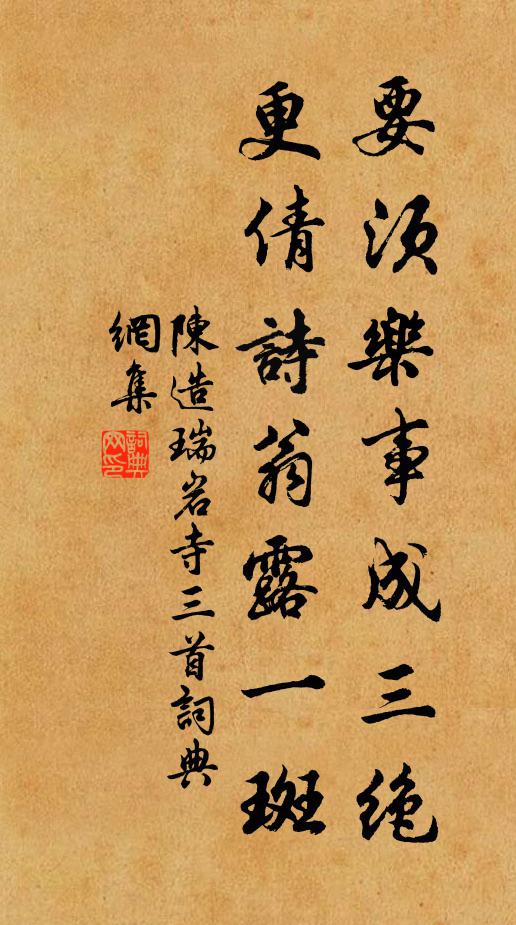 要須樂事成三絶
更倩詩翁露一斑
陳造瑞岩寺三首詞典
網集
詞典
网印